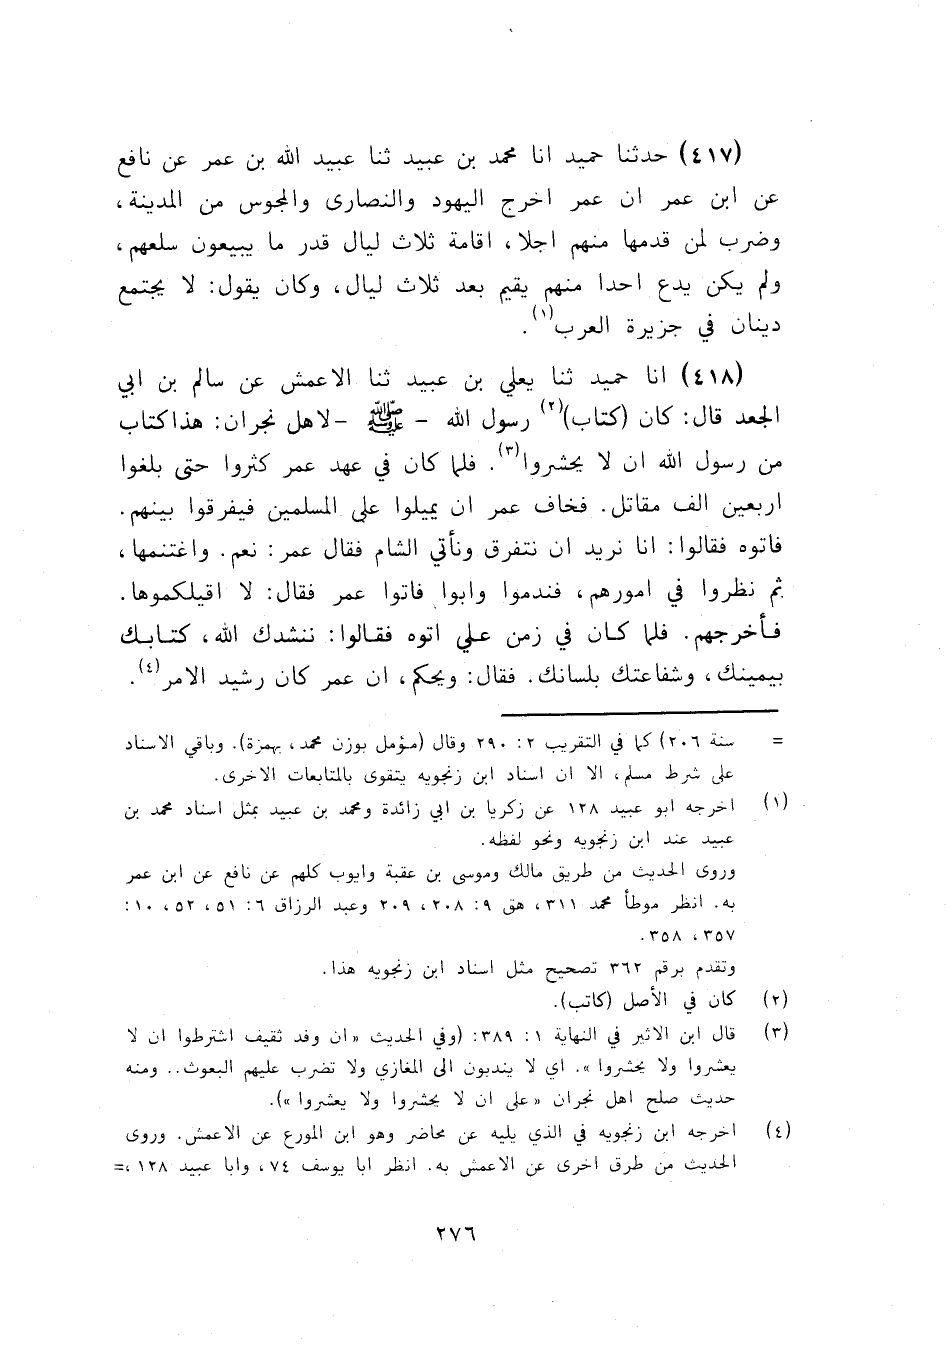 (٤١٧) حدثنا حميد انا محمد بن عبيد ثنا عبيد الله بن عمر عن نافع
عن ابن عمر ان عمر اخرج اليهود والنصارى والمجوس من المدينة،
وضرب لمن قدمها منهم اجلا، اقامة ثلاث ليال قدر ما يبيعون سلعهم،
ولم يكن يدع احدا منهم يقيم بعد ثلاث ليال، وكان يقول: لا يجتمع
دينان في جزيرة العرب(١).
(٤١٨) انا حميد ثنا يعلي بن عبيد ثنا الاعمش عن سالم بن ابي
الجعد قال: كان (كتاب)(٢) رسول الله - ﷺ - لاهل نجران: هذا كتاب
من رسول الله ان لا يحشروا(٣). فلما كان في عهد عمر كثروا حتى بلغوا
اربعين الف مقاتل. فخاف عمر ان يميلوا على المسلمين فيفرقوا بينهم.
فاتوه فقالوا: انا نريد ان نتفرق ونأتي الشام فقال عمر: نعم. واغتنمها،
ثم نظروا في امورهم، فندموا وابوا فاتوا عمر فقال: لا اقيلكموها.
فأخرجهم. فلما كان في زمن علي اتوه فقالوا: ننشدك الله، كتابك
بيمينك، وشفاعتك بلسانك. فقال: ويحكم، ان عمر كان رشيد الامر(٤).
= سنة ٢٠٦) كما في التقريب ٢: ٢٩٠ وقال (مؤمل بوزن محمد، بهمزة). وباقي الاسناد
على شرط مسلم، الا ان اسناد ابن زنجويه يتقوى بالمتابعات الاخرى.
(١) اخرجه ابو عبيد ١٢٨ عن زكريا بن ابي زائدة ومحمد بن عبيد بمثل اسناد محمد بن
عبيد عند ابن زنجويه ونحو لفظه.
وروى الحديث من طريق مالك وموسى بن عقبة وايوب كلهم عن نافع عن ابن عمر
به. انظر موطأ محمد ٣١١، هق ٩: ٢٠٨، ٢٠٩ وعبد الرزاق ٦: ٥١، ٥٢، ١٠:
٣٥٧، ٣٥٨.
وتقدم برقم ٣٦٢ تصحيح مثل اسناد ابن زنجويه هذا.
(٢) كان في الأصل (كاتب).
(٣) قال ابن الاثير في النهاية ١: ٣٨٩: (وفي الحديث «ان وفد ثقيف اشترطوا ان لا
يعشروا ولا يحشروا». اي لا يندبون الى المغازي ولا تضرب عليهم البعوث.. ومنه
حديث صلح اهل نجران «على ان لا يحشروا ولا يعشروا»).
(٤) اخرجه ابن زنجويه في الذي يليه عن محاضر وهو ابن المورع عن الاعمش. وروى
الحديث من طرق اخرى عن الاعمش به. انظر ابا يوسف ٧٤، وابا عبيد ١٢٨،=
٢٧٦